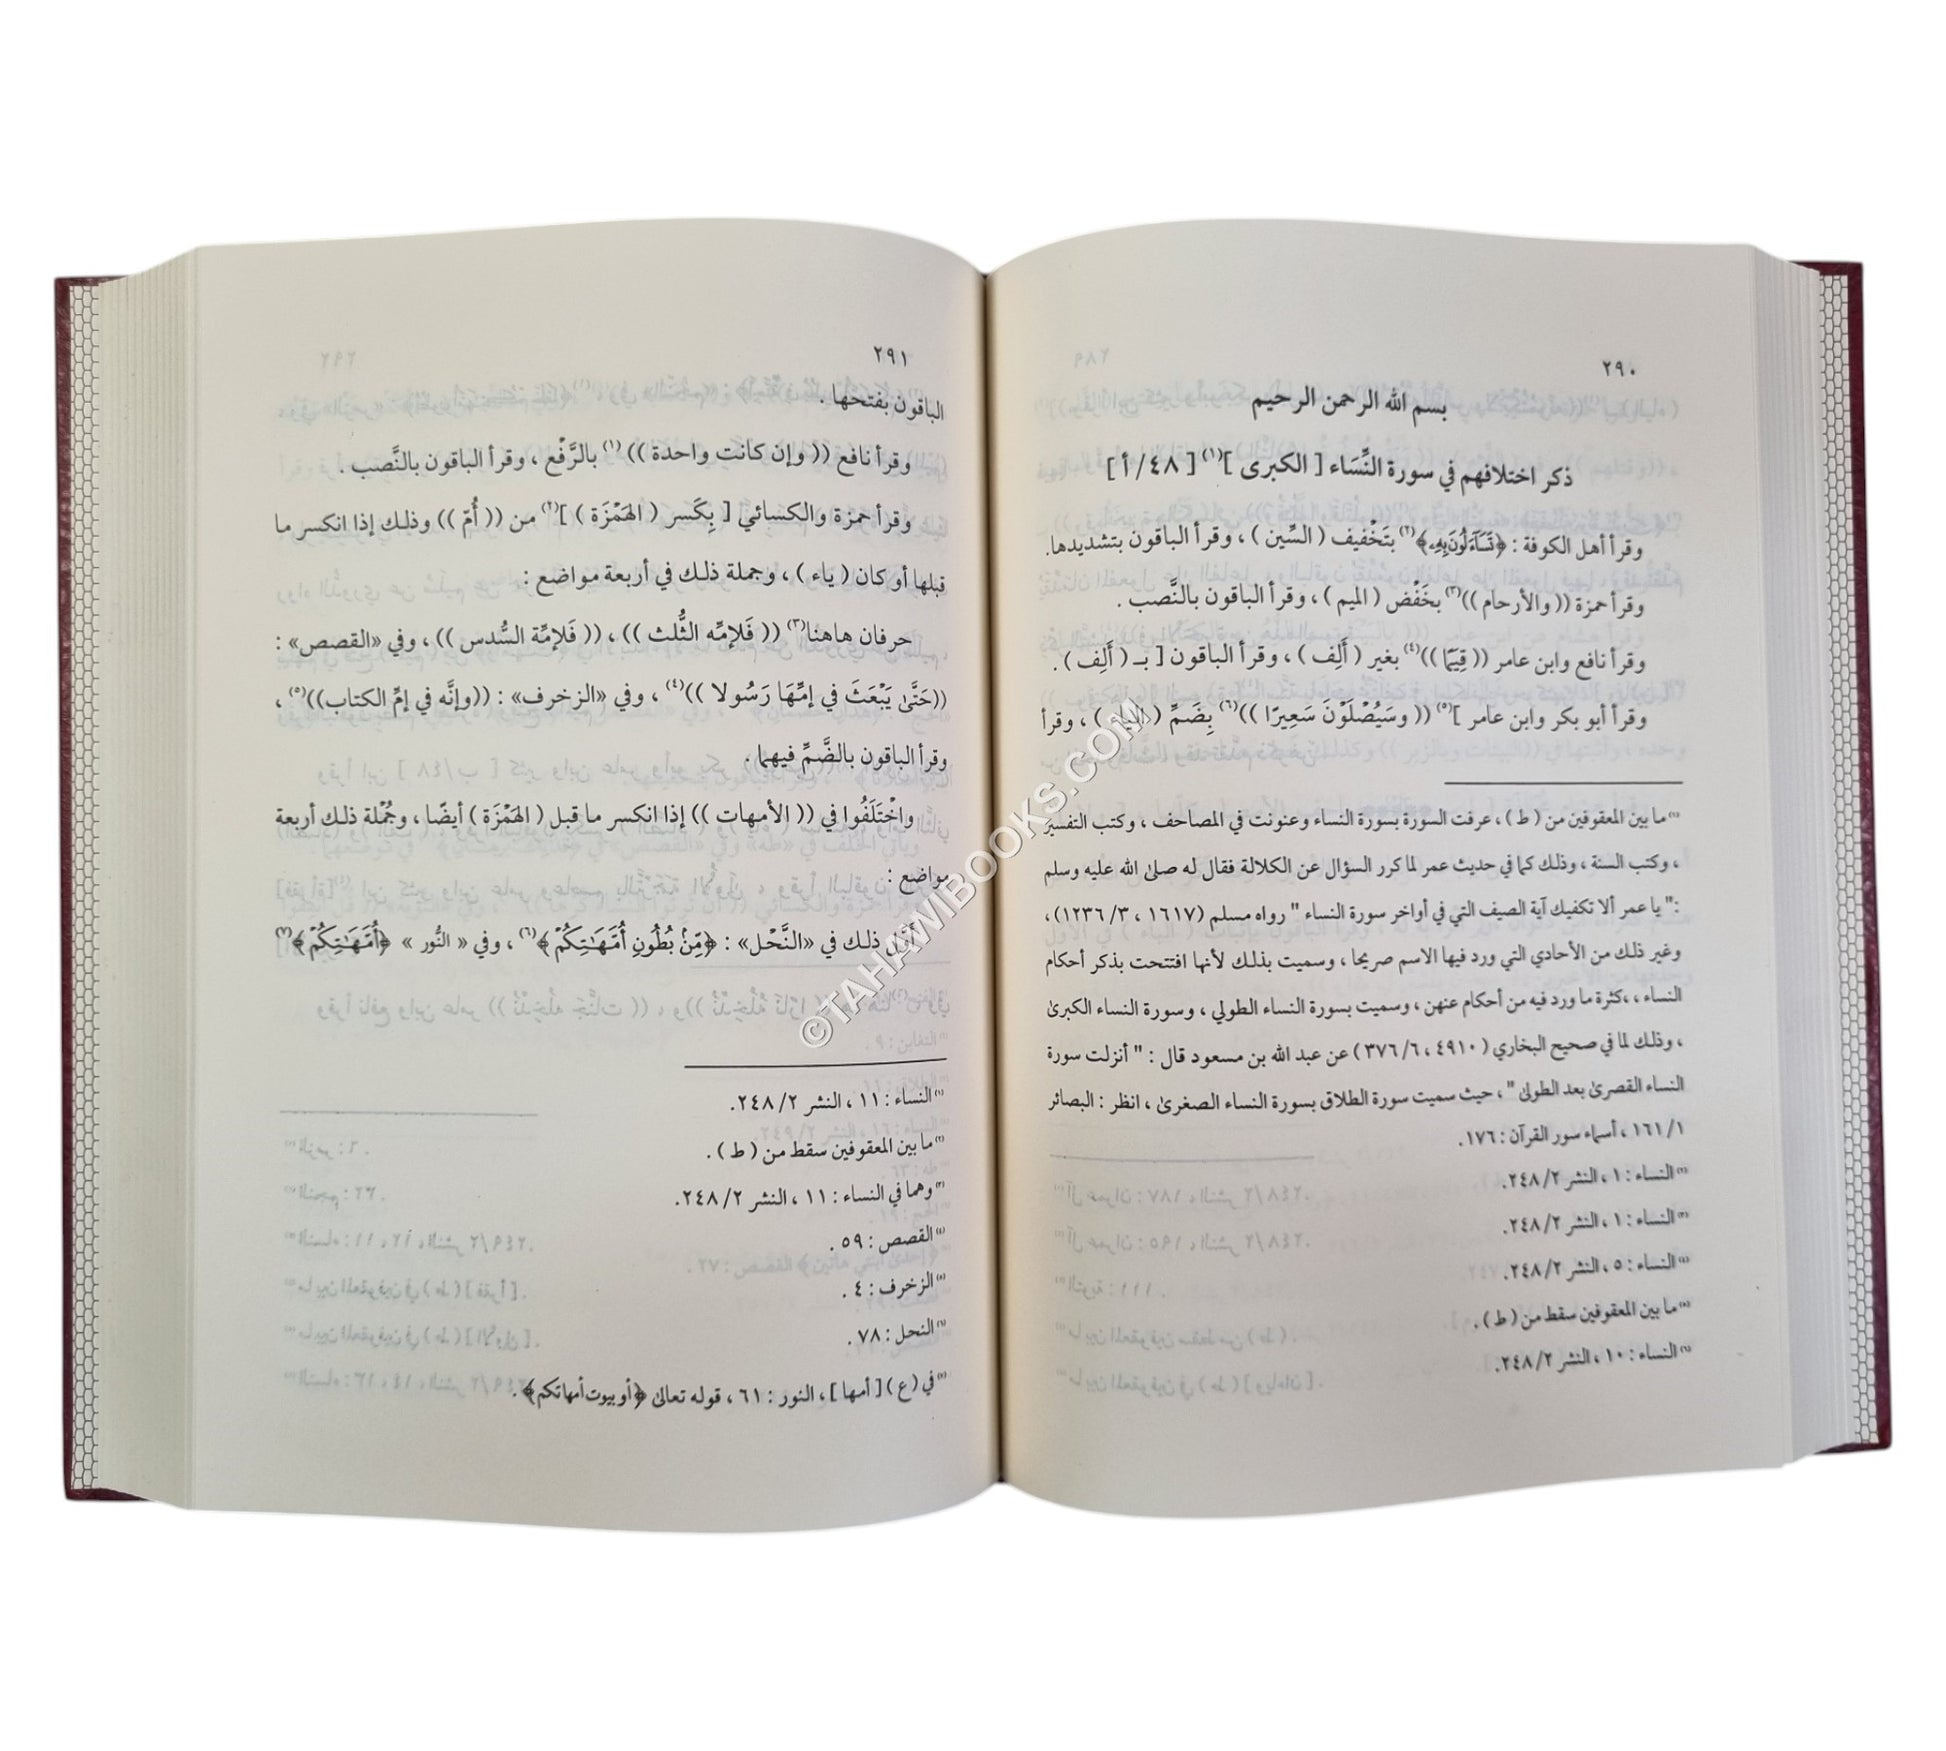 ٢٩٠
بسم الله الرحمن الرحيم
ذكر اختلافهم في سورة النِّسَاء [ الكبرى ](١) [ ٤٨/أ ]
وقرأ أهل الكوفة : ﴿تَسَآءَلُونَ بِهِۦ﴾(٢) بتَخْفيف ( السِّين ) ، وقرأ الباقون بتشديدها.
وقرأ حمزة (( والأرحام ))(٣) بخَفْض ( الميم ) ، وقرأ الباقون بالنَّصب .
وقرأ نافع وابن عامر (( قِيَمًا ))(٤) بغير ( أَلِف ) ، وقرأ الباقون [ بـ ( أَلِف ) .
وقرأ أبو بكر وابن عامر ](٥) (( وسَيُصْلَوْنَ سَعِيرًا ))(٦) بِضَمِّ ( الياء ) ، وقرأ
(١) ما بين المعقوفين من ( ط ) ، عرفت السورة بسورة النساء وعنونت في المصاحف ، وكتب التفسير
، وكتب السنة ، وذلك كما في حديث عمر لما كرر السؤال عن الكلالة فقال له صلى الله عليه وسلم
:" يا عمر ألا تكفيك آية الصيف التي في أواخر سورة النساء " رواه مسلم (١٦١٧ ، ٣/ ١٢٣٦) ،
وغير ذلك من الأحادي التي ورد فيها الاسم صريحا ، وسميت بذلك لأنها افتتحت بذكر أحكام
النساء ، ،كثرة ما ورد فيه من أحكام عنهن ، وسميت بسورة النساء الطولي ، وسورة النساء الكبرى
، وذلك لما في صحيح البخاري ( ٤٩١٠ ، ٦/ ٣٧٦ ) عن عبد الله بن مسعود قال : " أنزلت سورة
النساء القصرى بعد الطولى " ، حيث سميت سورة الطلاق بسورة النساء الصغرى ، انظر : البصائر
١/ ١٦١ ، أسماء سور القرآن : ١٧٦.
(٢) النساء : ١ ، النشر ٢/ ٢٤٨.
(٣) النساء : ١ ، النشر ٢/ ٢٤٨.
(٤) النساء : ٥ ، النشر ٢/ ٢٤٨.
(٥) ما بين المعقوفين سقط من ( ط ) .
(٦) النساء : ١٠ ، النشر ٢/ ٢٤٨.
٢٩١
الباقون بفتحها .
وقرأ نافع (( وإن كانت واحدة ))(١) بالرَّفْع ، وقرأ الباقون بالنَّصب .
وقرأ حمزة والكسائي [ بِكَسر ( الهَمْزَة ) ](٢) من (( أُمّ )) وذلك إذا انكسر ما
قبلها أو كان ( ياء ) ، وجملة ذلك في أربعة مواضع :
حرفان هاهنا(٣) (( فَلإمِّه الثُّلث )) ، (( فَلإمِّهِ السُّدس )) ، وفي «القصص» :
((حَتَّى يَبْعَثَ في إمِّهَا رَسُولا ))(٤) ، وفي «الزخرف» : ((وإنَّه في إمِّ الكتاب))(٥) ،
وقرأ الباقون بالضَّمِّ فيهما .
واخْتَلَفُوا في (( الأمهات )) إذا انكسر ما قبل ( الهَمْزَة ) أيضًا ، وجُمْلة ذلك أربعة
مواضع :
ذلك في «النَّحْل» : ﴿مِّنۢ بُطُونِ أُمَّهَٰتِكُمْ﴾(٦) ، وفي « النُّور » ﴿أُمَّهَٰتِكُمْ﴾(٧)
(١) النساء : ١١ ، النشر ٢/ ٢٤٨.
(٢) ما بين المعقوفين سقط من ( ط ) .
(٣) وهما في النساء : ١١ ، النشر ٢/ ٢٤٨.
(٤) القصص : ٥٩ .
(٥) الزخرف : ٤ .
(٦) النحل : ٧٨ .
(٧) في ( ع ) [ أمها ] ، النور : ٦١ ، قوله تعالى ﴿أو بيوت أمهاتكم﴾ .
©TAHAWIBOOKS.COM